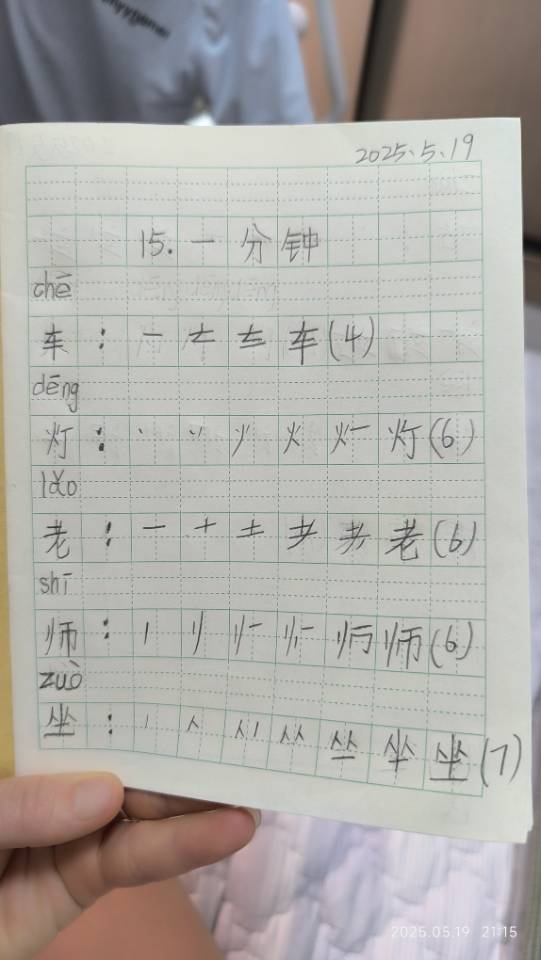 2025.5.19
15.一分钟
chē
车：一 𠂇 三 车(4)
dēng
灯：丶 丷 火 灯(6)
lǎo
老：一 十 土 耂 老(6)
shī
师：丨 师(6)
zuò
坐：丿 人 从 坐(7)
2025.05.19 21:15